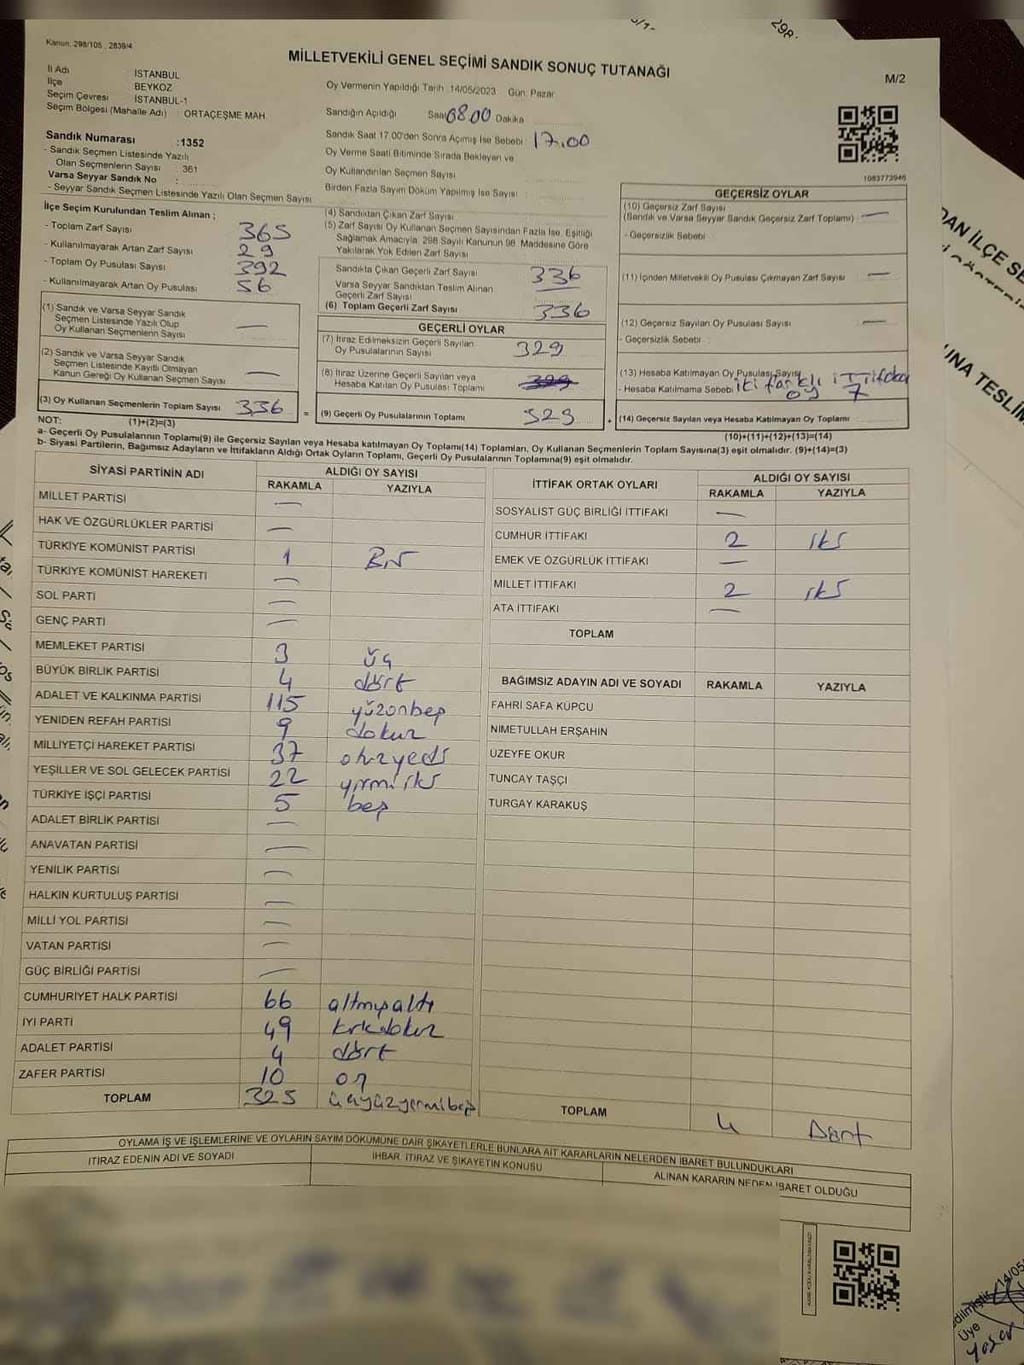 Kanun: 298/105 , 2839/4
MİLLETVEKİLİ GENEL SEÇİMİ SANDIK SONUÇ TUTANAĞI
M/2
İl Adı : İSTANBUL
İlçe : BEYKOZ
Seçim Çevresi : İSTANBUL-1
Seçim Bölgesi (Mahalle Adı) : ORTAÇEŞME MAH.
Oy Vermenin Yapıldığı Tarih :14/05/2023 Gün: Pazar
Sandığın Açıldığı Saat 08.00 Dakika
Sandık Saat 17.00'den Sonra Açılmış İse Sebebi : 17.00
Oy Verme Saati Bitiminde Sırada Bekleyen ve
Oy Kullandırılan Seçmen Sayısı :
Birden Fazla Sayım Döküm Yapılmış İse Sayısı :
1083773946
Sandık Numarası :1352
- Sandık Seçmen Listesinde Yazılı
Olan Seçmenlerin Sayısı : 361
Varsa Seyyar Sandık No :
- Seyyar Sandık Seçmen Listesinde Yazılı Olan Seçmen Sayısı
İlçe Seçim Kurulundan Teslim Alınan ;
- Toplam Zarf Sayısı 365
- Kullanılmayarak Artan Zarf Sayısı 29
- Toplam Oy Pusulası Sayısı 392
- Kullanılmayarak Artan Oy Pusulası 56
(1) Sandık ve Varsa Seyyar Sandık
Seçmen Listesinde Yazılı Olup
Oy Kullanan Seçmenlerin Sayısı —
(2) Sandık ve Varsa Seyyar Sandık
Seçmen Listesinde Kayıtlı Olmayan
Kanun Gereği Oy Kullanan Seçmen Sayısı —
(3) Oy Kullanan Seçmenlerin Toplam Sayısı 336 =
(4) Sandıktan Çıkan Zarf Sayısı
(5) Zarf Sayısı Oy Kullanan Seçmen Sayısından Fazla İse, Eşitliği
Sağlamak Amacıyla; 298 Sayılı Kanunun 98. Maddesine Göre
Yakılarak Yok Edilen Zarf Sayısı
Sandıkta Çıkan Geçerli Zarf Sayısı 336
Varsa Seyyar Sandıktan Teslim Alınan
Geçerli Zarf Sayısı
(6) Toplam Geçerli Zarf Sayısı 336
GEÇERLİ OYLAR
(7) İtiraz Edilmeksizin Geçerli Sayılan
Oy Pusulalarının Sayısı 329
(8) İtiraz Üzerine Geçerli Sayılan veya
Hesaba Katılan Oy Pusulası Toplamı
(9) Geçerli Oy Pusulalarının Toplamı 329 +
GEÇERSİZ OYLAR
(10) Geçersiz Zarf Sayısı
(Sandık ve Varsa Seyyar Sandık Geçersiz Zarf Toplamı) —
- Geçersizlik Sebebi :
(11) İçinden Milletvekili Oy Pusulası Çıkmayan Zarf Sayısı —
(12) Geçersiz Sayılan Oy Pusulası Sayısı —
- Geçersizlik Sebebi :
(13) Hesaba Katılmayan Oy Pusulası Sayısı
- Hesaba Katılmama Sebebi : iki farklı ittifaka oy 7
(14) Geçersiz Sayılan veya Hesaba Katılmayan Oy Toplamı
NOT: (1)+(2)=(3)
(10)+(11)+(12)+(13)=(14)
a- Geçerli Oy Pusulalarının Toplamı(9) ile Geçersiz Sayılan veya Hesaba katılmayan Oy Toplamı(14) Toplamları, Oy Kullanan Seçmenlerin Toplam Sayısına(3) eşit olmalıdır. (9)+(14)=(3)
b- Siyasi Partilerin, Bağımsız Adayların ve İttifakların Aldığı Ortak Oyların Toplamı, Geçerli Oy Pusulalarının Toplamına(9) eşit olmalıdır.
SİYASİ PARTİNİN ADI ALDIĞI OY SAYISI
RAKAMLA YAZIYLA
MİLLET PARTİSİ —
HAK VE ÖZGÜRLÜKLER PARTİSİ —
TÜRKİYE KOMÜNİST PARTİSİ 1 Bir
TÜRKİYE KOMÜNİST HAREKETİ —
SOL PARTİ —
GENÇ PARTİ —
MEMLEKET PARTİSİ 3 üç
BÜYÜK BİRLİK PARTİSİ 4 dört
ADALET VE KALKINMA PARTİSİ 115 yüzonbeş
YENİDEN REFAH PARTİSİ 9 dokuz
MİLLİYETÇİ HAREKET PARTİSİ 37 otuzyedi
YEŞİLLER VE SOL GELECEK PARTİSİ 22 yirmiiki
TÜRKİYE İŞÇİ PARTİSİ 5 beş
ADALET BİRLİK PARTİSİ —
ANAVATAN PARTİSİ —
YENİLİK PARTİSİ —
HALKIN KURTULUŞ PARTİSİ —
MİLLİ YOL PARTİSİ —
VATAN PARTİSİ —
GÜÇ BİRLİĞİ PARTİSİ —
CUMHURİYET HALK PARTİSİ 66 altmışaltı
İYİ PARTİ 49 kırkdokuz
ADALET PARTİSİ 4 dört
ZAFER PARTİSİ 10 on
TOPLAM 325 üçyüzyirmibeş
İTTİFAK ORTAK OYLARI ALDIĞI OY SAYISI
RAKAMLA YAZIYLA
SOSYALİST GÜÇ BİRLİĞİ İTTİFAKI —
CUMHUR İTTİFAKI 2 iki
EMEK VE ÖZGÜRLÜK İTTİFAKI —
MİLLET İTTİFAKI 2 iki
ATA İTTİFAKI —
TOPLAM
BAĞIMSIZ ADAYIN ADI VE SOYADI RAKAMLA YAZIYLA
FAHRİ SAFA KÜPCÜ
NİMETULLAH ERŞAHİN
ÜZEYFE OKUR
TUNCAY TAŞÇI
TURGAY KARAKUŞ
TOPLAM 4 Dört
OYLAMA İŞ VE İŞLEMLERİNE VE OYLARIN SAYIM DÖKÜMÜNE DAİR ŞİKAYETLERLE BUNLARA AİT KARARLARIN NELERDEN İBARET BULUNDUKLARI
İTİRAZ EDENİN ADI VE SOYADI
İHBAR, İTİRAZ VE ŞİKAYETİN KONUSU
ALINAN KARARIN NEDEN İBARET OLDUĞU
298
DAN İLÇE SE
UNA TESLİM
14/05
Üye